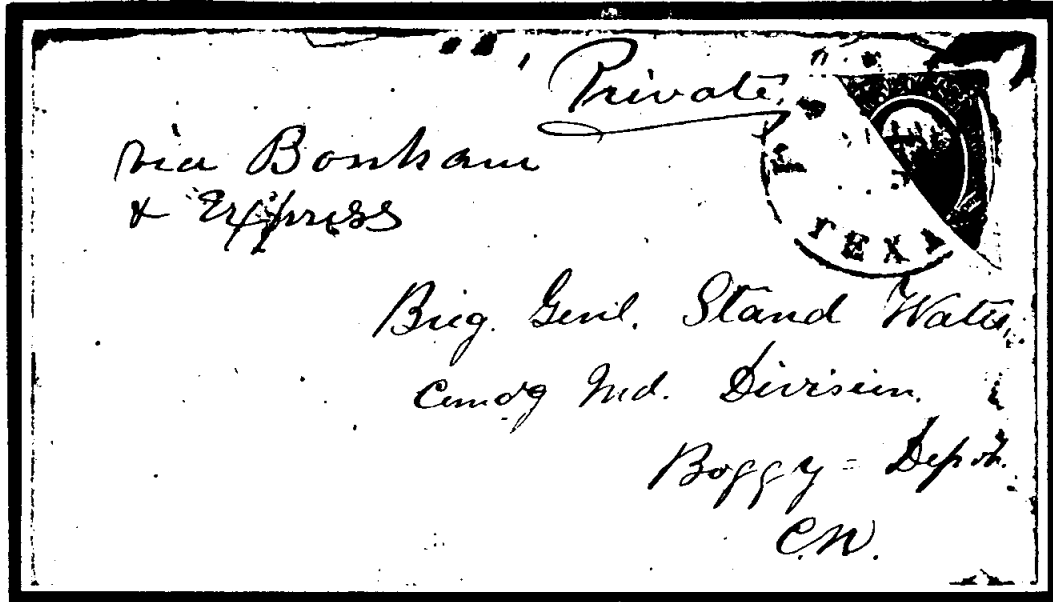 Private.
via Bonham
& Express
TEXA
Brig. Genl. Stand Watie,
Comdg Ind. Division.
Boggy = Depot.
C.N.